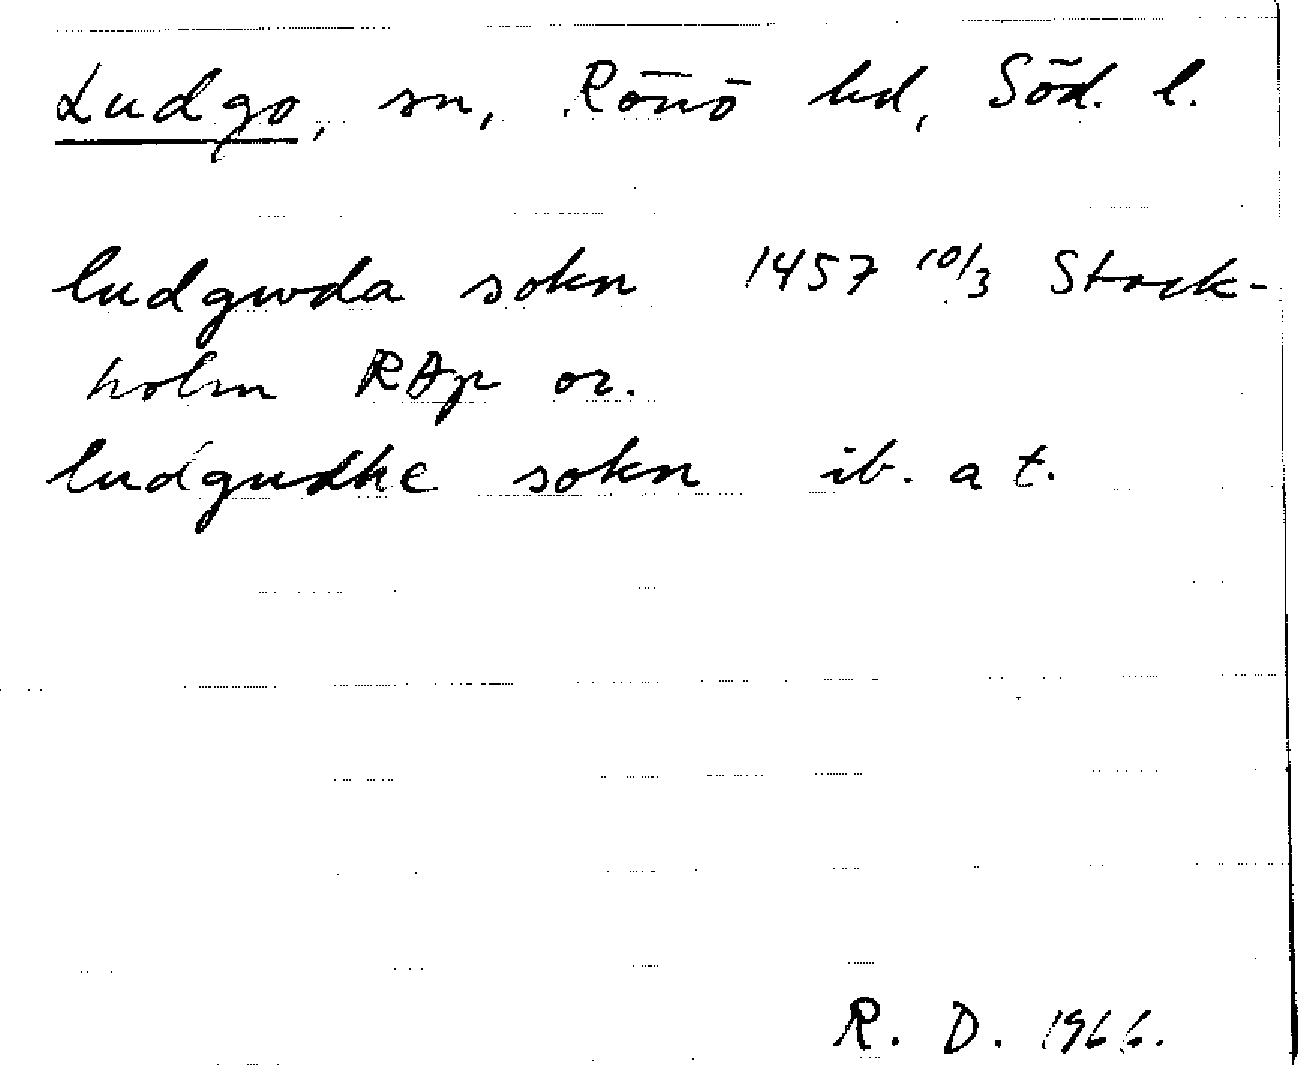 Ludgo, sn, Rönö hd, Söd. l.
ludgwda sokn 1457 10/3 Stock-
holm RAp or.
ludgudhe sokn ib. a t.
R. D. 1966.